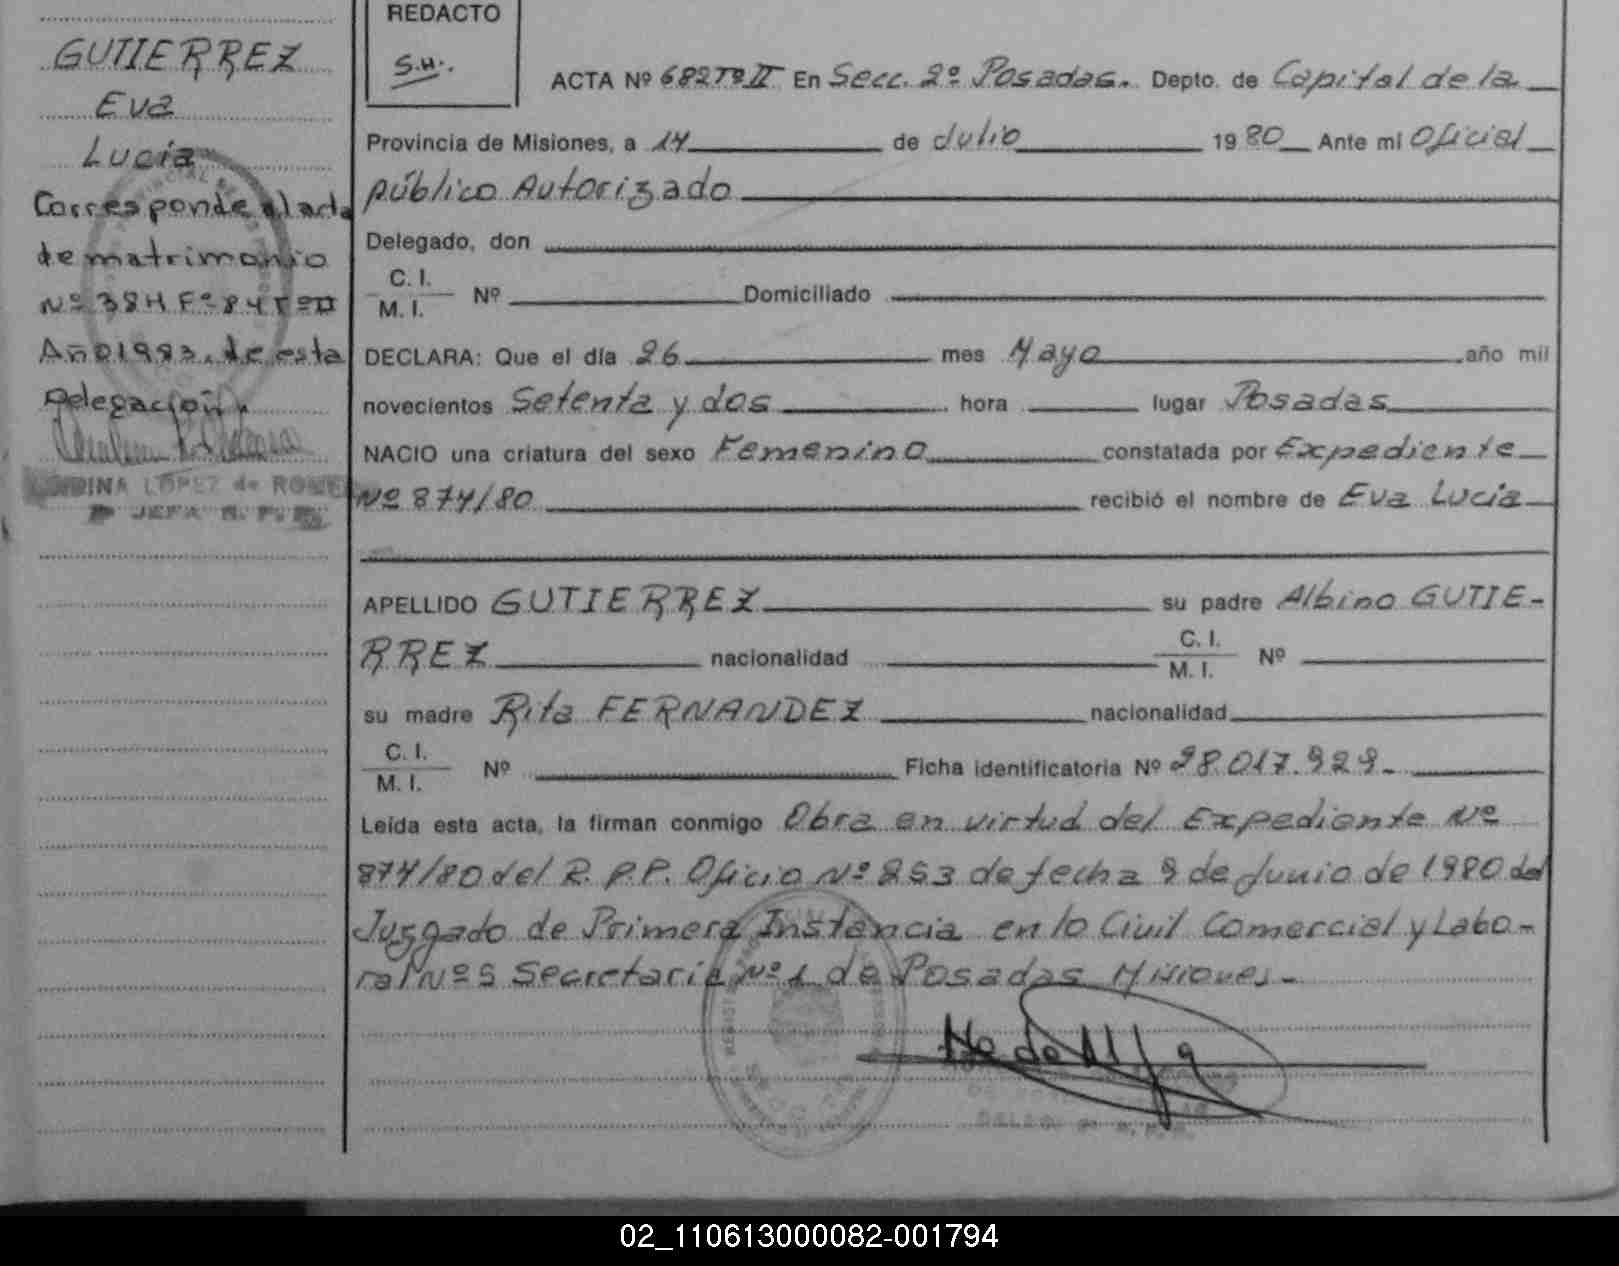 GUTIERREZ
Eva
Lucía
Corresponde al acta
de matrimonio
Nº 384 Fº 84 Tº II
Año 1993, de esta
Delegación
LOPEZ de
JEFA R. P.
REDACTO
S.H.
ACTA Nº 682 Tº II En Secc. 2º Posadas. Depto. de Capital de la
Provincia de Misiones, a 14 de Julio 1980 Ante mi Oficial
Público Autorizado
Delegado, don
C. I.
M. I. Nº Domiciliado
DECLARA: Que el día 26 mes Mayo año mil
novecientos Setenta y dos hora lugar Posadas
NACIO una criatura del sexo Femenino constatada por Expediente
Nº 874/80 recibió el nombre de Eva Lucia
APELLIDO GUTIERREZ su padre Albino GUTIE-
RREZ nacionalidad C. I. M. I. Nº
su madre Rita FERNANDEZ nacionalidad
C. I. M. I. Nº Ficha identificatoria Nº 28.017.929.
Leída esta acta, la firman conmigo Obra en virtud del Expediente Nº
874/80 del R.P.P. Oficio Nº 853 de fecha 9 de Junio de 1980 del
Juzgado de Primera Instancia en lo Civil Comercial y Labo-
ral Nº 5 Secretaría Nº 1 de Posadas Misiones.-
02_110613000082-001794